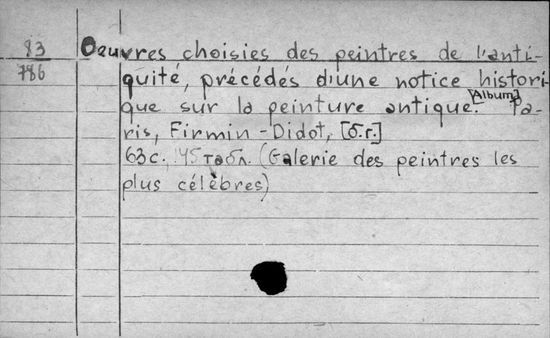 83 Oeuvres choisies des peintres de l'anti-
786 quité, précédés d'une notice histori-
que sur la peinture antique. [Album] Pa-
ris, Firmin-Didot, [б.г.]
63с., 45 табл. (Galerie des peintres les
plus célèbres)